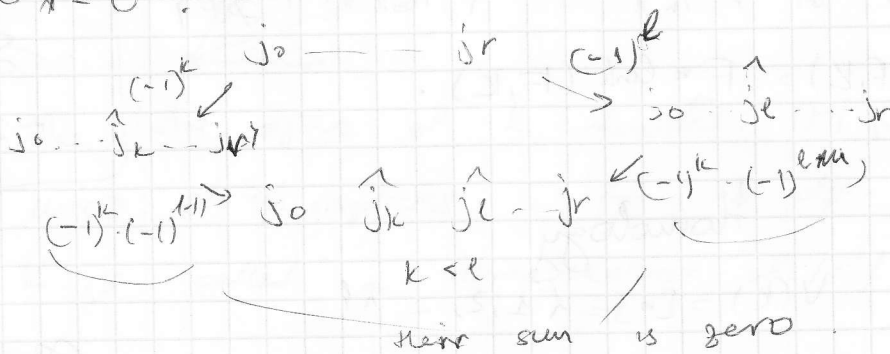 j₀ —— jᵣ
(-1)^k (-1)^l
j₀ … ĵₖ … j j₀ … ĵₗ … jᵣ
(-1)^k · (-1)^{l-1} j₀ ĵₖ ĵₗ … jᵣ (-1)^k · (-1)^l
k < l
their sum is zero.